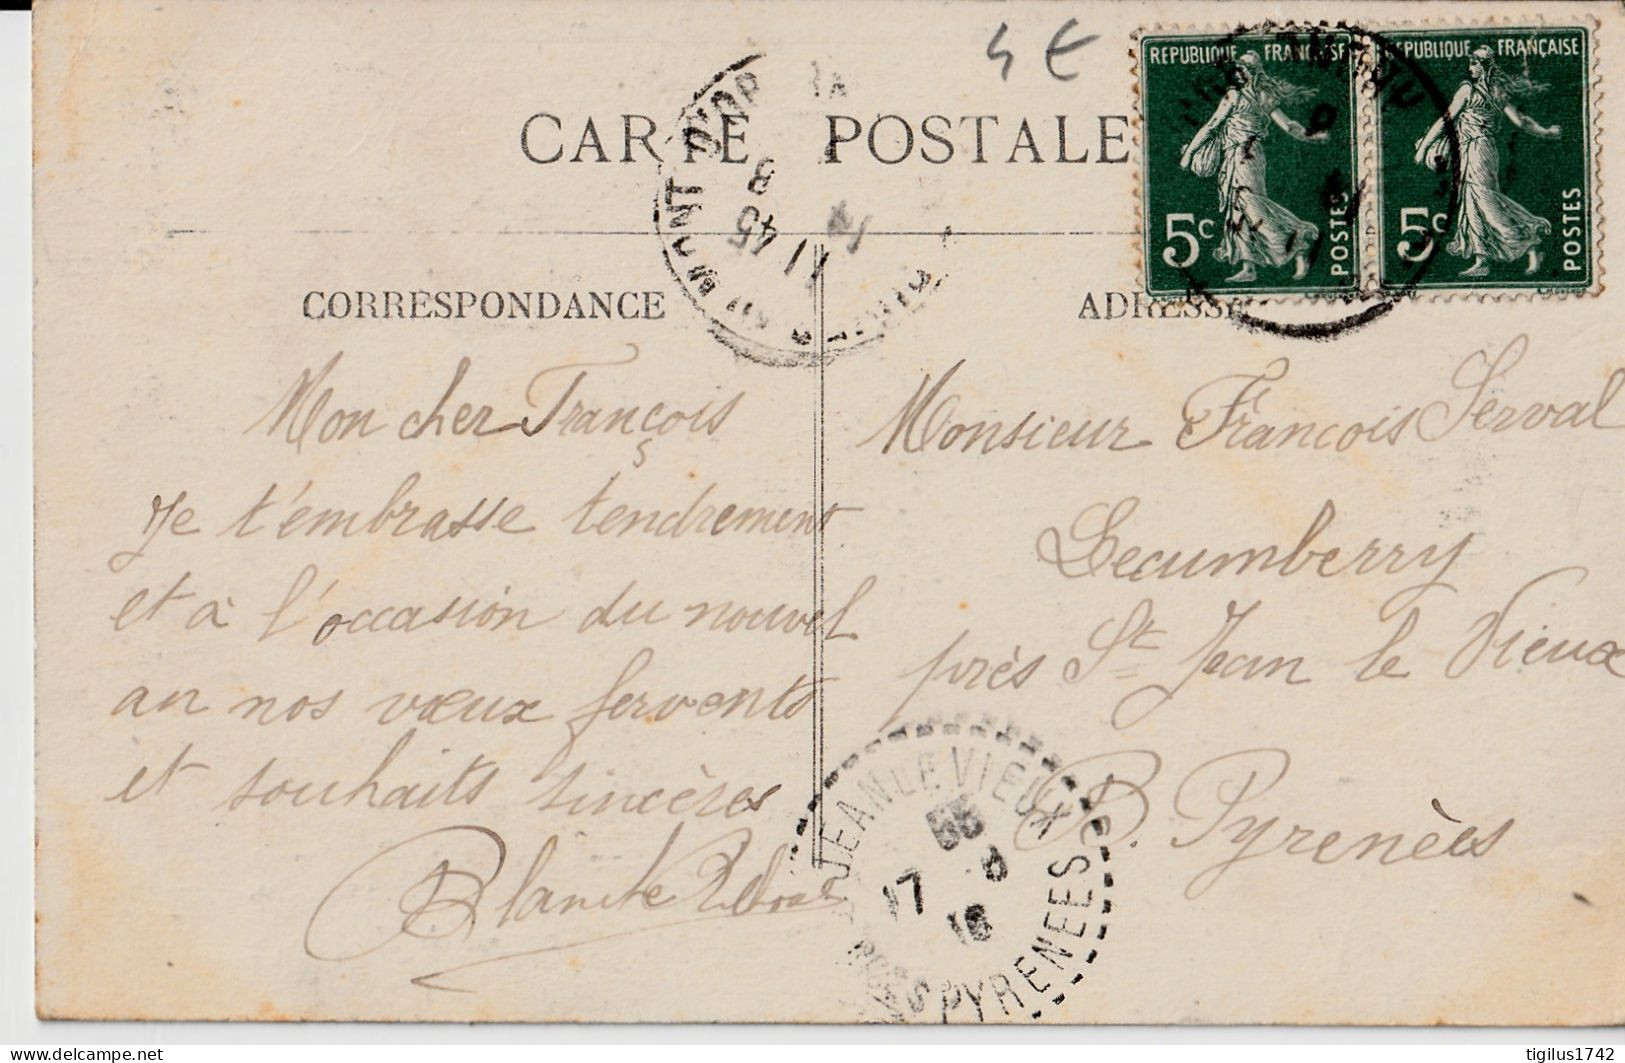 4 €
CARTE POSTALE
REPUBLIQUE FRANÇAISE
5c
POSTES
REPUBLIQUE FRANÇAISE
5c
POSTES
CORRESPONDANCE
Mon cher François
Je t'embrasse tendrement
et à l'occasion du nouvel
an nos vœux fervents
et souhaits sincères
ADRESSE
Monsieur Francois Serval
Lecumberry
près St Jean le Vieux
B. Pyrenèes
JEAN LE VIEUX
17
PYRENEES
Delcampe.net
tigilus1742